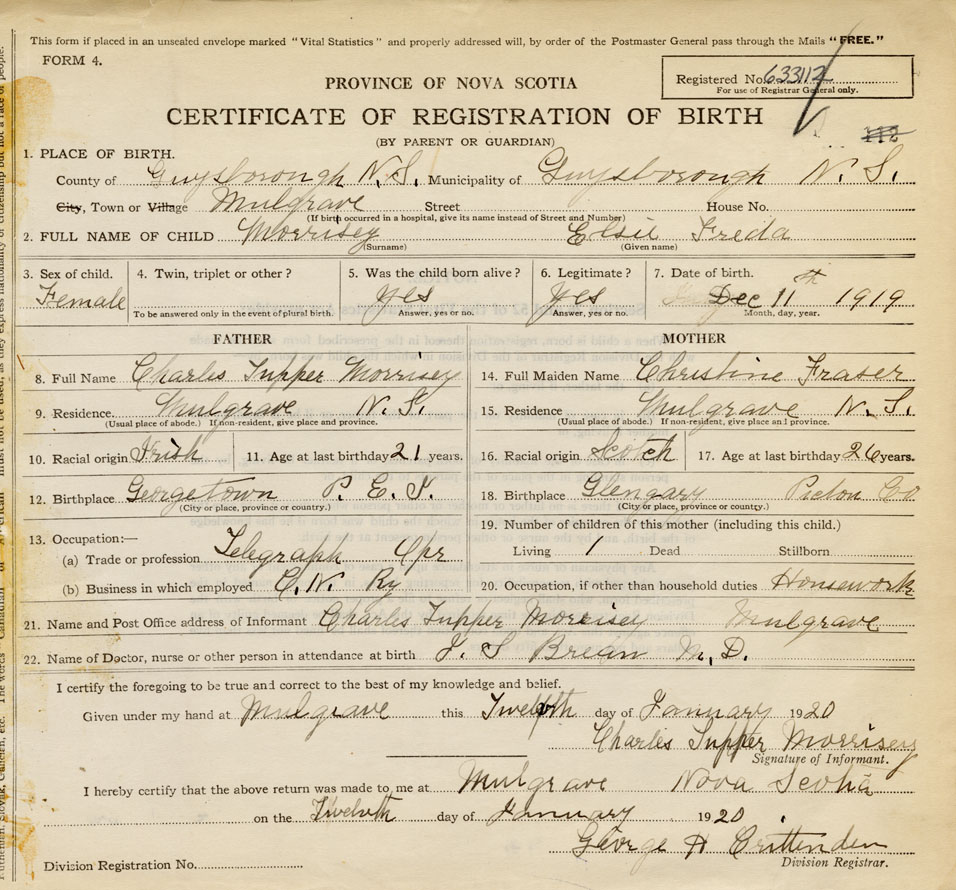 This form if placed in an unsealed envelope marked "Vital Statistics" and properly addressed will, by order of the Postmaster General pass through the Mails "FREE."
FORM 4.
PROVINCE OF NOVA SCOTIA
Registered No. 633112
For use of Registrar General only.
CERTIFICATE OF REGISTRATION OF BIRTH
112
(BY PARENT OR GUARDIAN)
1. PLACE OF BIRTH.
County of Guysborough N.S. Municipality of Guysborough N. S.
City, Town or Village Mulgrave Street House No.
(If birth occurred in a hospital, give its name instead of Street and Number)
2. FULL NAME OF CHILD Morrisey Elsie Freda
(Surname) (Given name)
3. Sex of child. 4. Twin, triplet or other? 5. Was the child born alive? 6. Legitimate? 7. Date of birth.
Female yes yes Dec 11th 1919
To be answered only in the event of plural birth. Answer, yes or no. Answer, yes or no. Month, day, year.
FATHER MOTHER
8. Full Name Charles Tupper Morrisey 14. Full Maiden Name Christine Fraser
9. Residence. Mulgrave N.S. 15. Residence Mulgrave N.S.
(Usual place of abode.) If non-resident, give place and province. (Usual place of abode.) If non-resident, give place and province.
10. Racial origin Irish 11. Age at last birthday 21 years. 16. Racial origin Scotch 17. Age at last birthday 26 years.
12. Birthplace Georgetown P. E. I. 18. Birthplace Glengary Pictou Co
(City or place, province or country.) (City or place, province or country.)
13. Occupation:— 19. Number of children of this mother (including this child.)
(a) Trade or profession Telegraph Opr Living 1 Dead Stillborn
(b) Business in which employed C.N. Ry 20. Occupation, if other than household duties Housework
21. Name and Post Office address of Informant Charles Tupper Morrisey Mulgrave
22. Name of Doctor, nurse or other person in attendance at birth J. S Brean M.D.
I certify the foregoing to be true and correct to the best of my knowledge and belief.
Given under my hand at Mulgrave this Twelfth day of January 1920
Charles Tupper Morrisey
Signature of Informant.
I hereby certify that the above return was made to me at Mulgrave Nova Scotia
on the Twelvth day of January 1920
George H Crittenden
Division Registration No. Division Registrar.